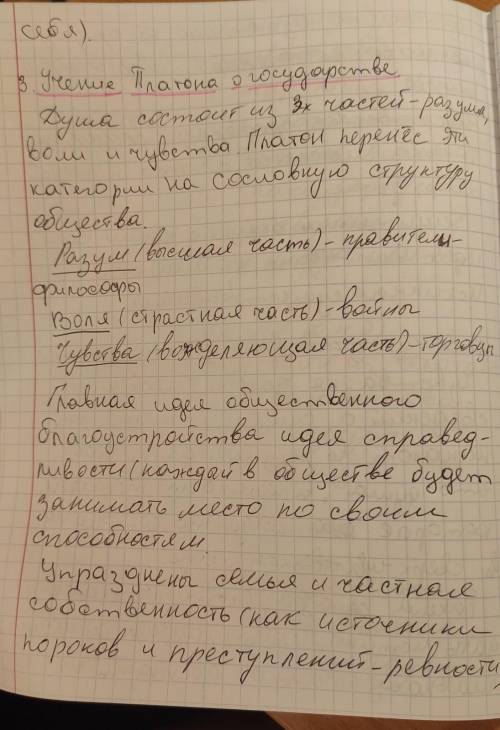 себя).
3 Учение Платона о государстве
Душа состоит из 3х частей - разума,
воли и чувства Платон перенёс эти
категории на сословную структуру
общества.
Разум (высшая часть) - правители-
философы
Воля (страстная часть) - войны
Чувства (вожделяющая часть) - торговцы
Главная идея общественного
благоустройства идея справед-
ливости (каждай в обществе будет
занимать место по своим
способностям.
Упразднены семья и частная
собственность (как источники
пороков и преступлений - ревности,